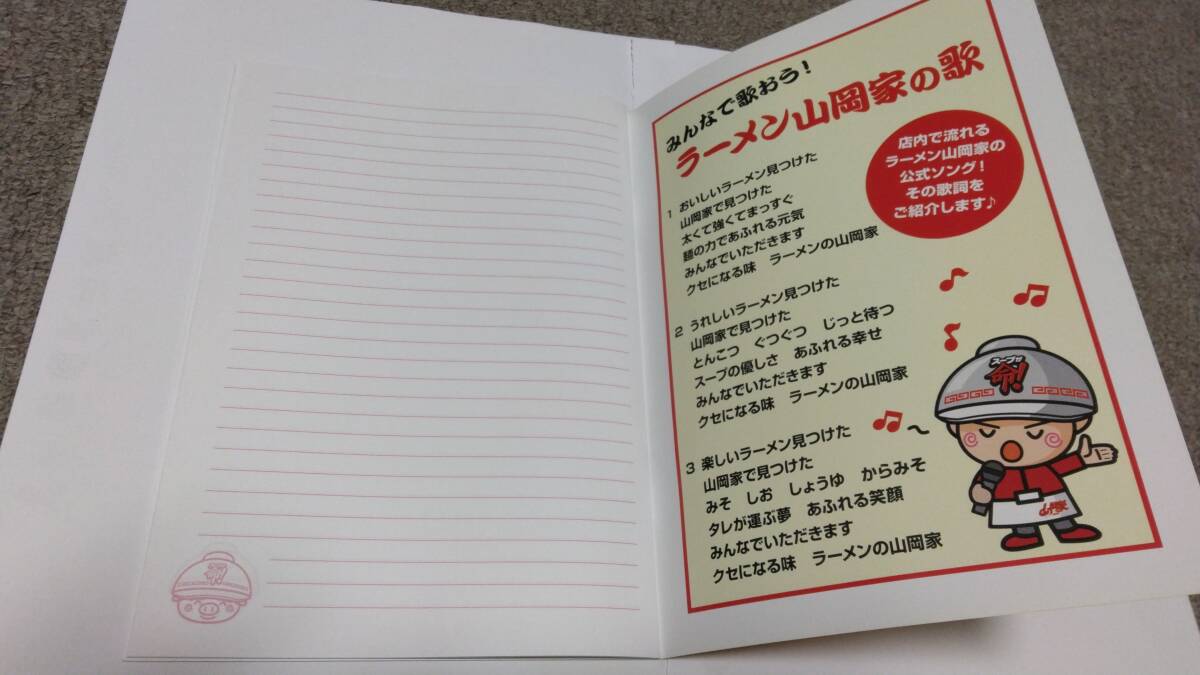 みんなで歌おう!
ラーメン山岡家の歌
店内で流れる
ラーメン山岡家の
公式ソング!
その歌詞を
ご紹介します♪
1 おいしいラーメン見つけた
山岡家で見つけた
太くて強くてまっすぐ
麺の力であふれる元気
みんなでいただきます
クセになる味 ラーメンの山岡家
2 うれしいラーメン見つけた
山岡家で見つけた
とんこつ ぐつぐつ じっと待つ
スープの優しさ あふれる幸せ
みんなでいただきます
クセになる味 ラーメンの山岡家
3 楽しいラーメン見つけた
山岡家で見つけた
みそ しお しょうゆ からみそ
タレが運ぶ夢 あふれる笑顔
みんなでいただきます
クセになる味 ラーメンの山岡家
スープが
命!
山岡家
命